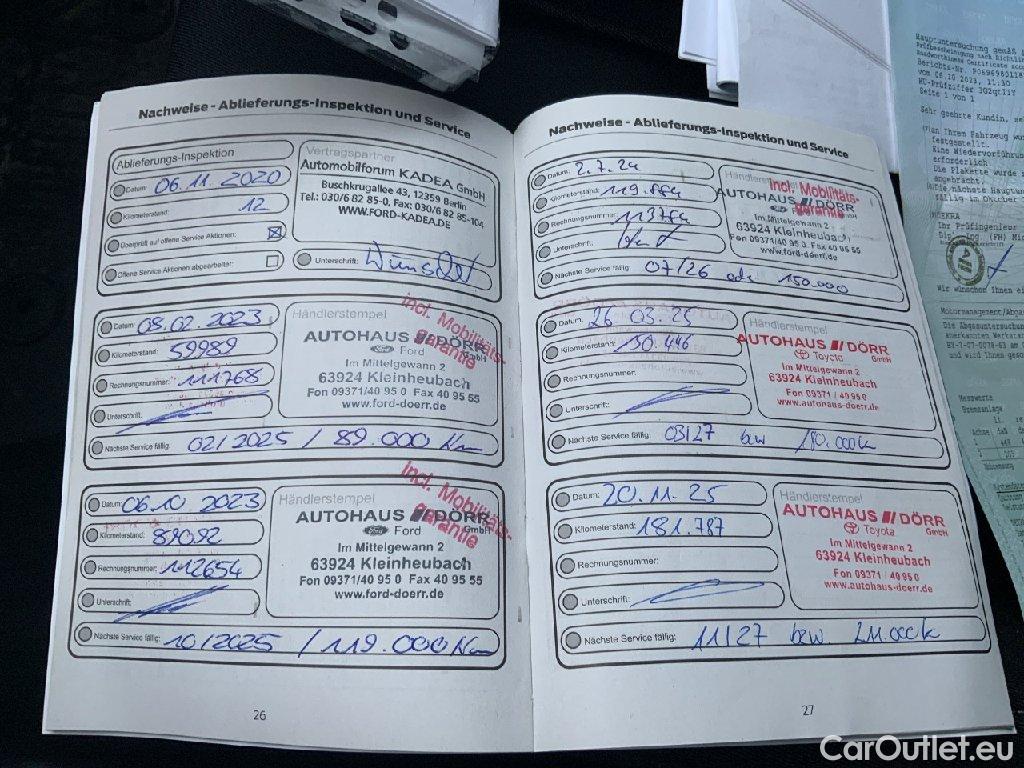 Nachweise - Ablieferungs-Inspektion und Service
Ablieferungs-Inspektion
Datum: 06.11.2020
Kilometerstand: 12
Überprüft auf offene Service Aktionen:
Offene Service Aktionen abgearbeitet:
Vertragspartner
Automobilforum KADEA GmbH
Buschkrugallee 43, 12359 Berlin
Tel.: 030/6 82 85-0, Fax: 030/6 82 85-104
WWW.FORD-KADEA.DE
Unterschrift:
Datum: 08.02.2023
Kilometerstand: 59989
Rechnungsnummer: 111768
Unterschrift:
Nächste Service fällig: 02/2025 / 89.000 Km
Händlerstempel
incl. Mobilitäts-
garantie
AUTOHAUS DÖRR
Ford GmbH
Im Mittelgewann 2
63924 Kleinheubach
Fon 09371/40 95 0 Fax 40 95 55
www.ford-doerr.de
Datum: 06.10.2023
Kilometerstand: 89092
Rechnungsnummer: 112654
Unterschrift:
Nächste Service fällig: 10/2025 / 119.000 Km
Händlerstempel
incl. Mobilitäts-
garantie
AUTOHAUS DÖRR
Ford GmbH
Im Mittelgewann 2
63924 Kleinheubach
Fon 09371/40 95 0 Fax 40 95 55
www.ford-doerr.de
26
Nachweise - Ablieferungs-Inspektion und Service
Datum: 2.7.24
Kilometerstand: 119.884
Rechnungsnummer: 113784
Unterschrift:
Nächste Service fällig: 07/26 ode 150.000
incl. Mobilitäts-
garantie
AUTOHAUS DÖRR
Im Mittelgewann 2
63924 Kleinheubach
Fon 09371/40 95 0 Fax 40 95 55
www.ford-doerr.de
Datum: 26.03.25
Kilometerstand: 150.446
Rechnungsnummer:
Unterschrift:
Nächste Service fällig: 03/27 bzw 180.000k
Händlerstempel
AUTOHAUS DÖRR
Toyota GmbH
Im Mittelgewann 2
63924 Kleinheubach
Fon 09371 / 40 95 0
www.autohaus-doerr.de
Datum: 20.11.25
Kilometerstand: 181.787
Rechnungsnummer:
Unterschrift:
Nächste Service fällig: 11/27 bzw
Händlerstempel
AUTOHAUS DÖRR
Toyota GmbH
Im Mittelgewann 2
63924 Kleinheubach
Fon 09371 / 40 95 0
www.autohaus-doerr.de
27
Hauptuntersuchung gemäß
vom 06.10.2023, 11:30
Seite 1 von 1
DEKRA
CarOutlet.eu